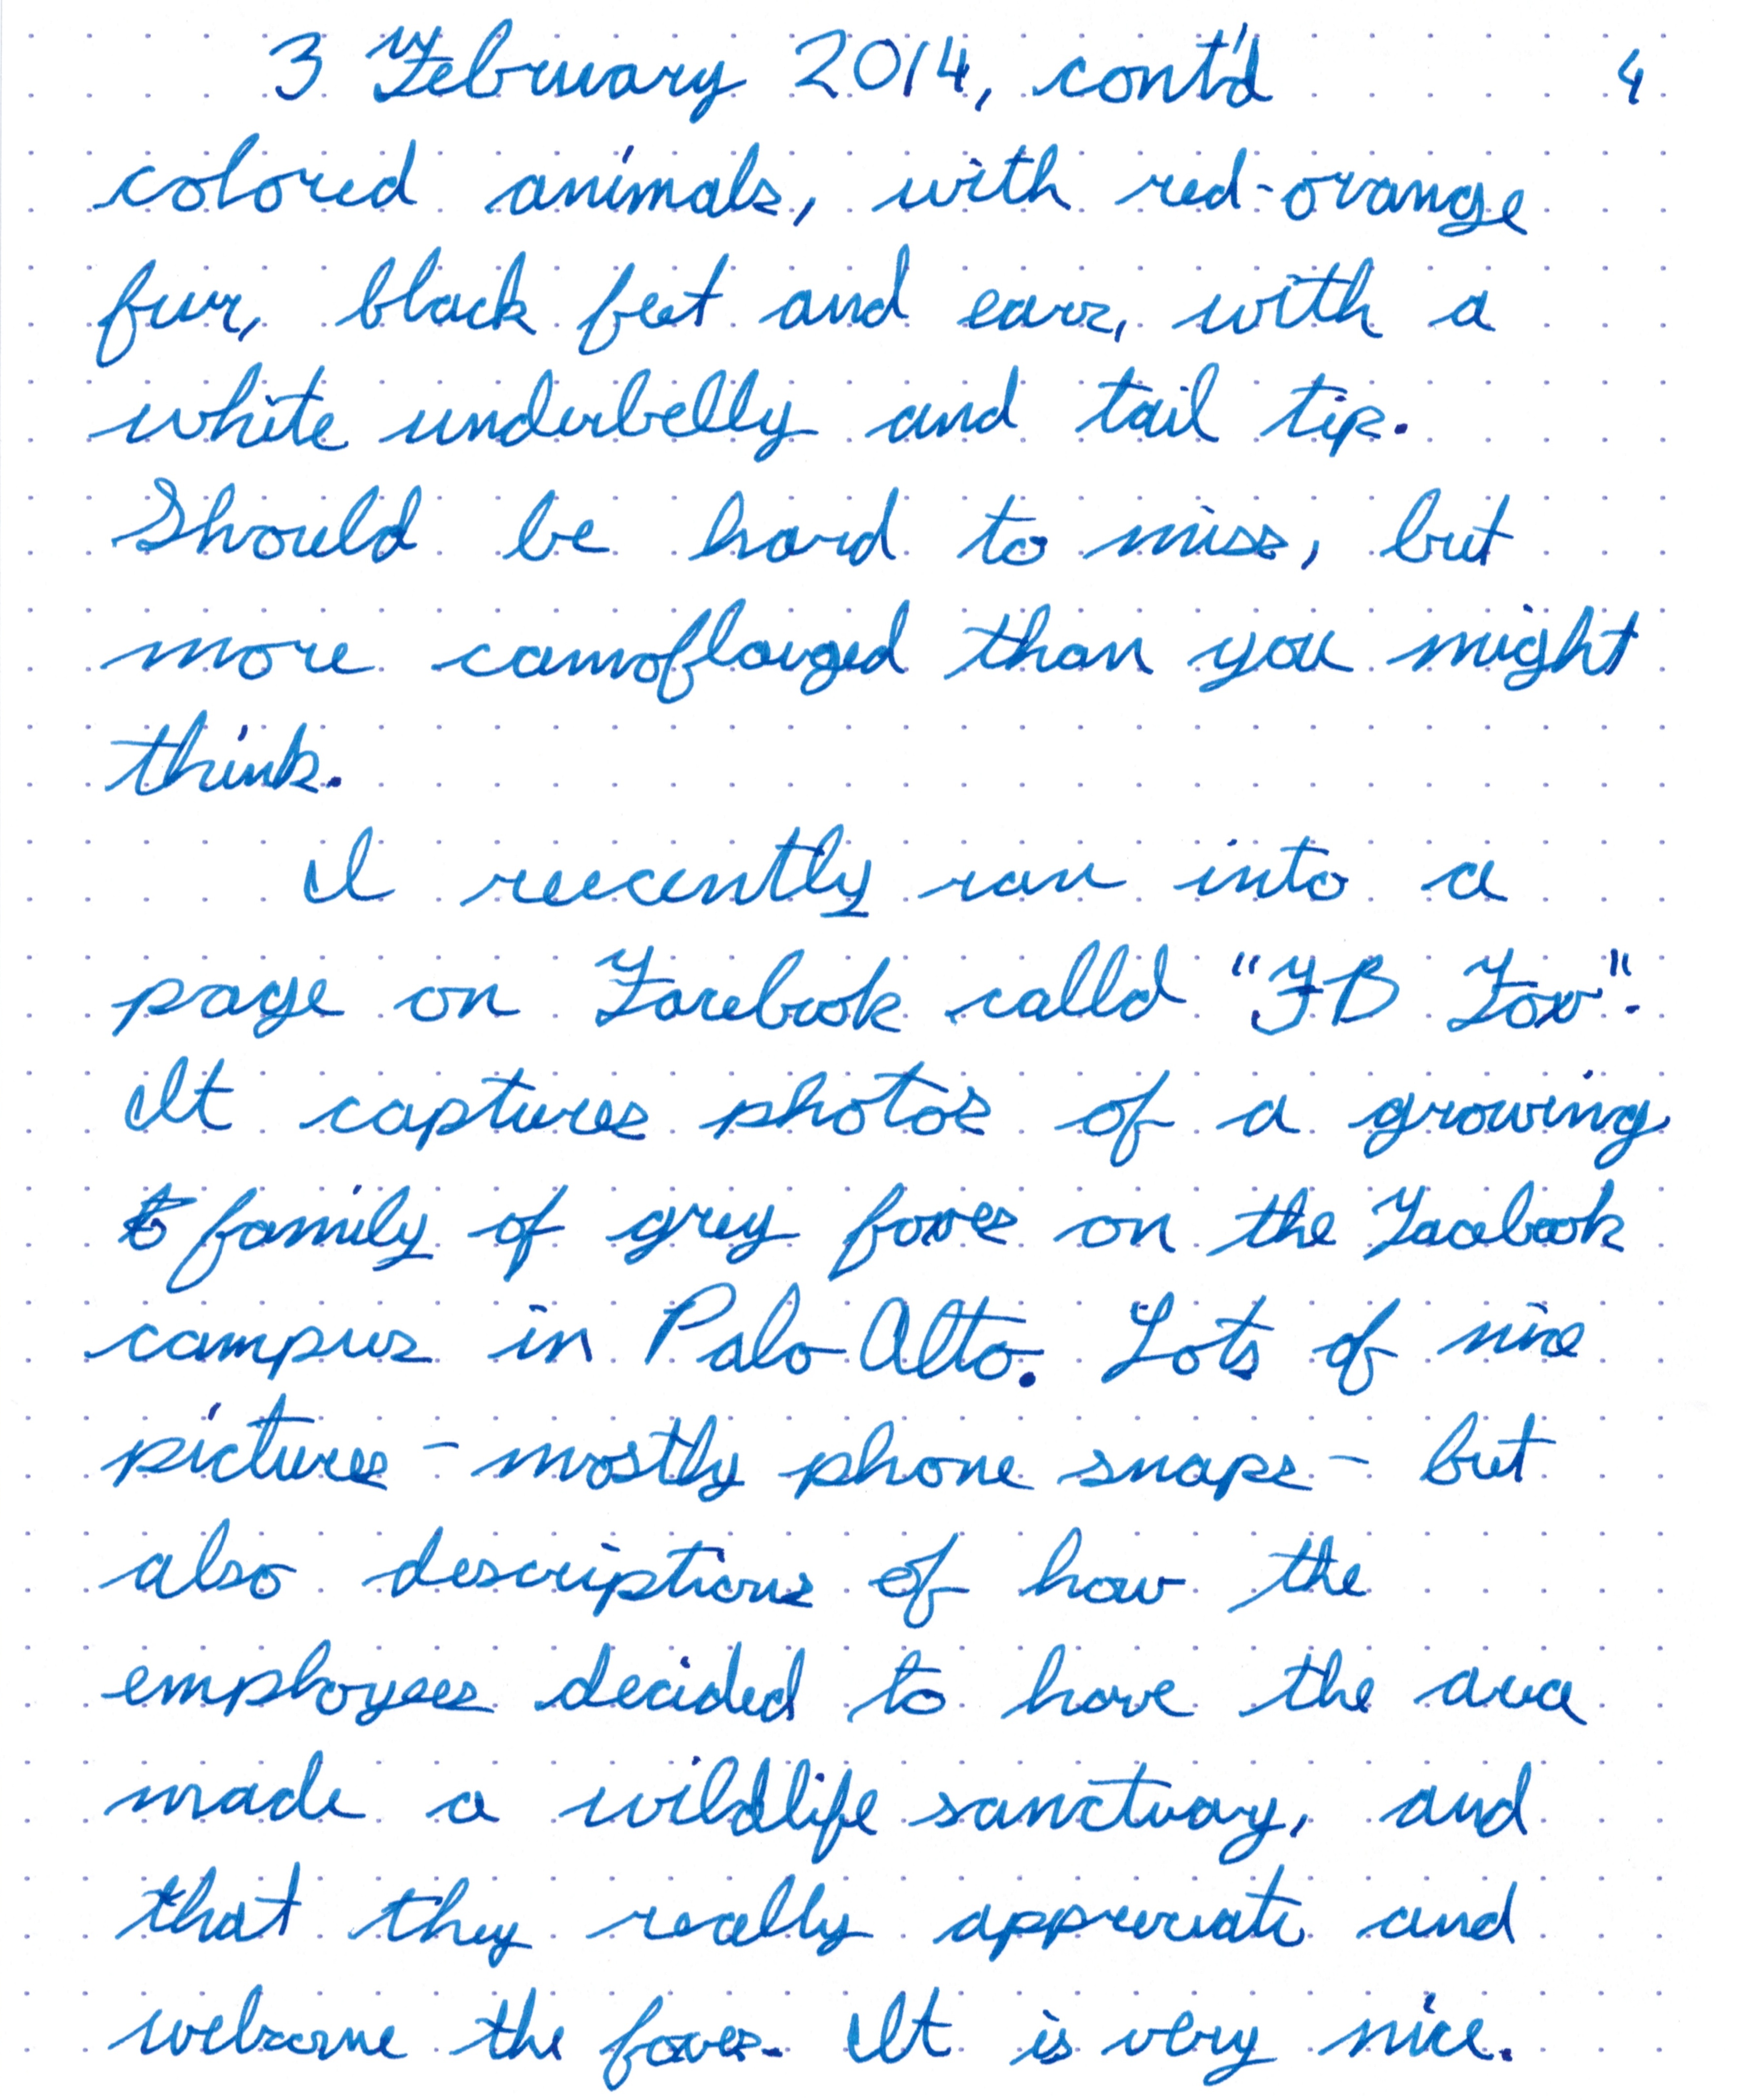 3 February 2014, cont'd 4
colored animals, with red-orange
fur, black feet and ears, with a
white underbelly and tail tip.
Should be hard to miss, but
more camoflauged than you might
think.
I reecently ran into a
page on Facebook calld "FB Fox".
It captures photos of a growing
family of grey foxes on the Facebook
campus in Palo Alto. Lots of nice
pictures - mostly phone snaps - but
also descriptions of how the
employees decided to have the area
made a wildlife sanctuary, and
that they really appreciate and
welcome the foxes. It is very nice.